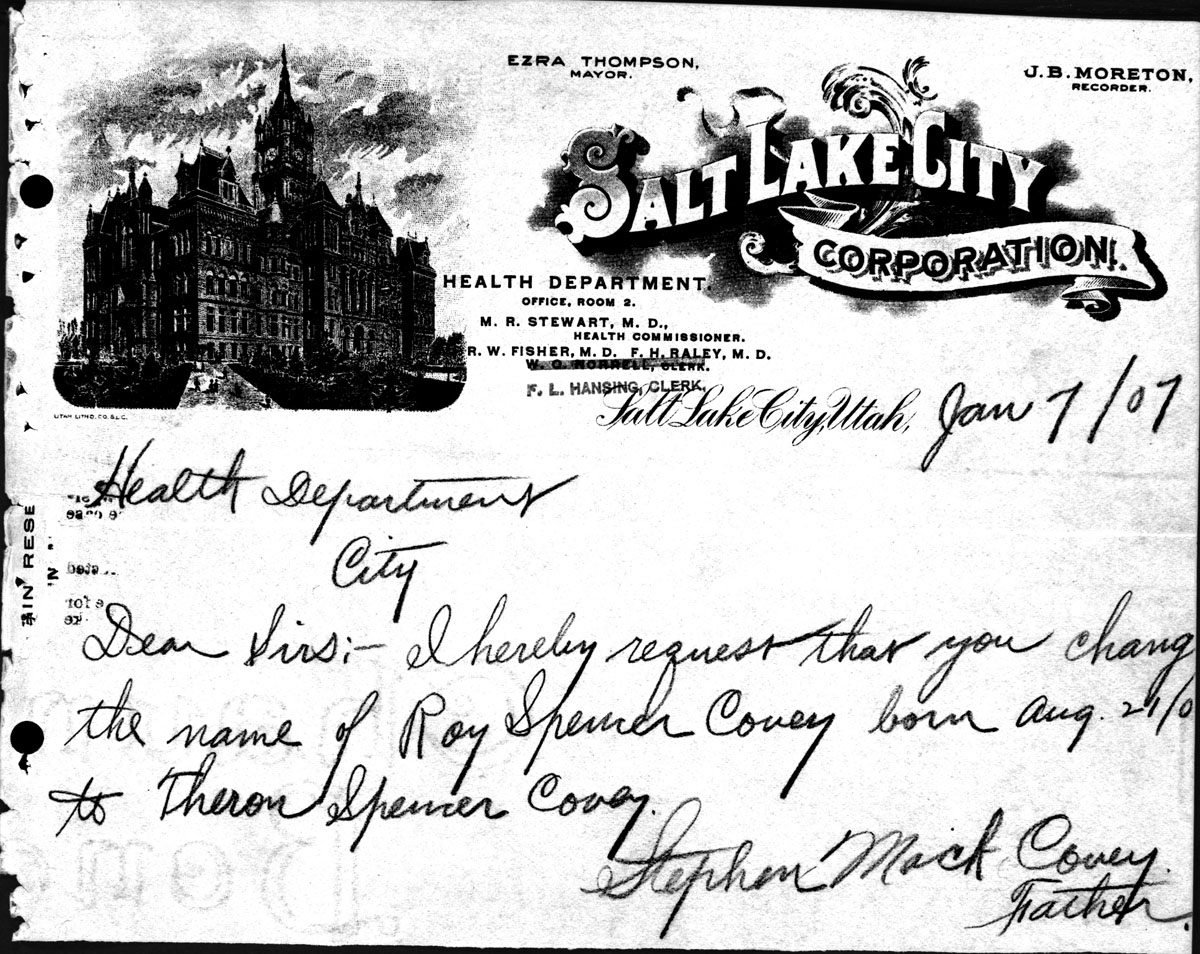 EZRA THOMPSON,
MAYOR.
J. B. MORETON,
RECORDER.
SALT LAKE CITY
CORPORATION.
HEALTH DEPARTMENT.
OFFICE, ROOM 2.
M. R. STEWART, M. D.,
HEALTH COMMISSIONER.
R. W. FISHER, M. D. F. H. RALEY, M. D.
W. O. NORRELL, CLERK.
F. L. HANSING, CLERK.
UTAH LITHO. CO. S.L.C.
Salt Lake City, Utah, Jan 7/07
Health Department
City
Dear Sirs;- I hereby request that you chang
the name of Roy Spencer Covey born Aug. 21/0
to Theron Spencer Covey.
Stephen Mack Covey.
Father.
GIN RESE
IN